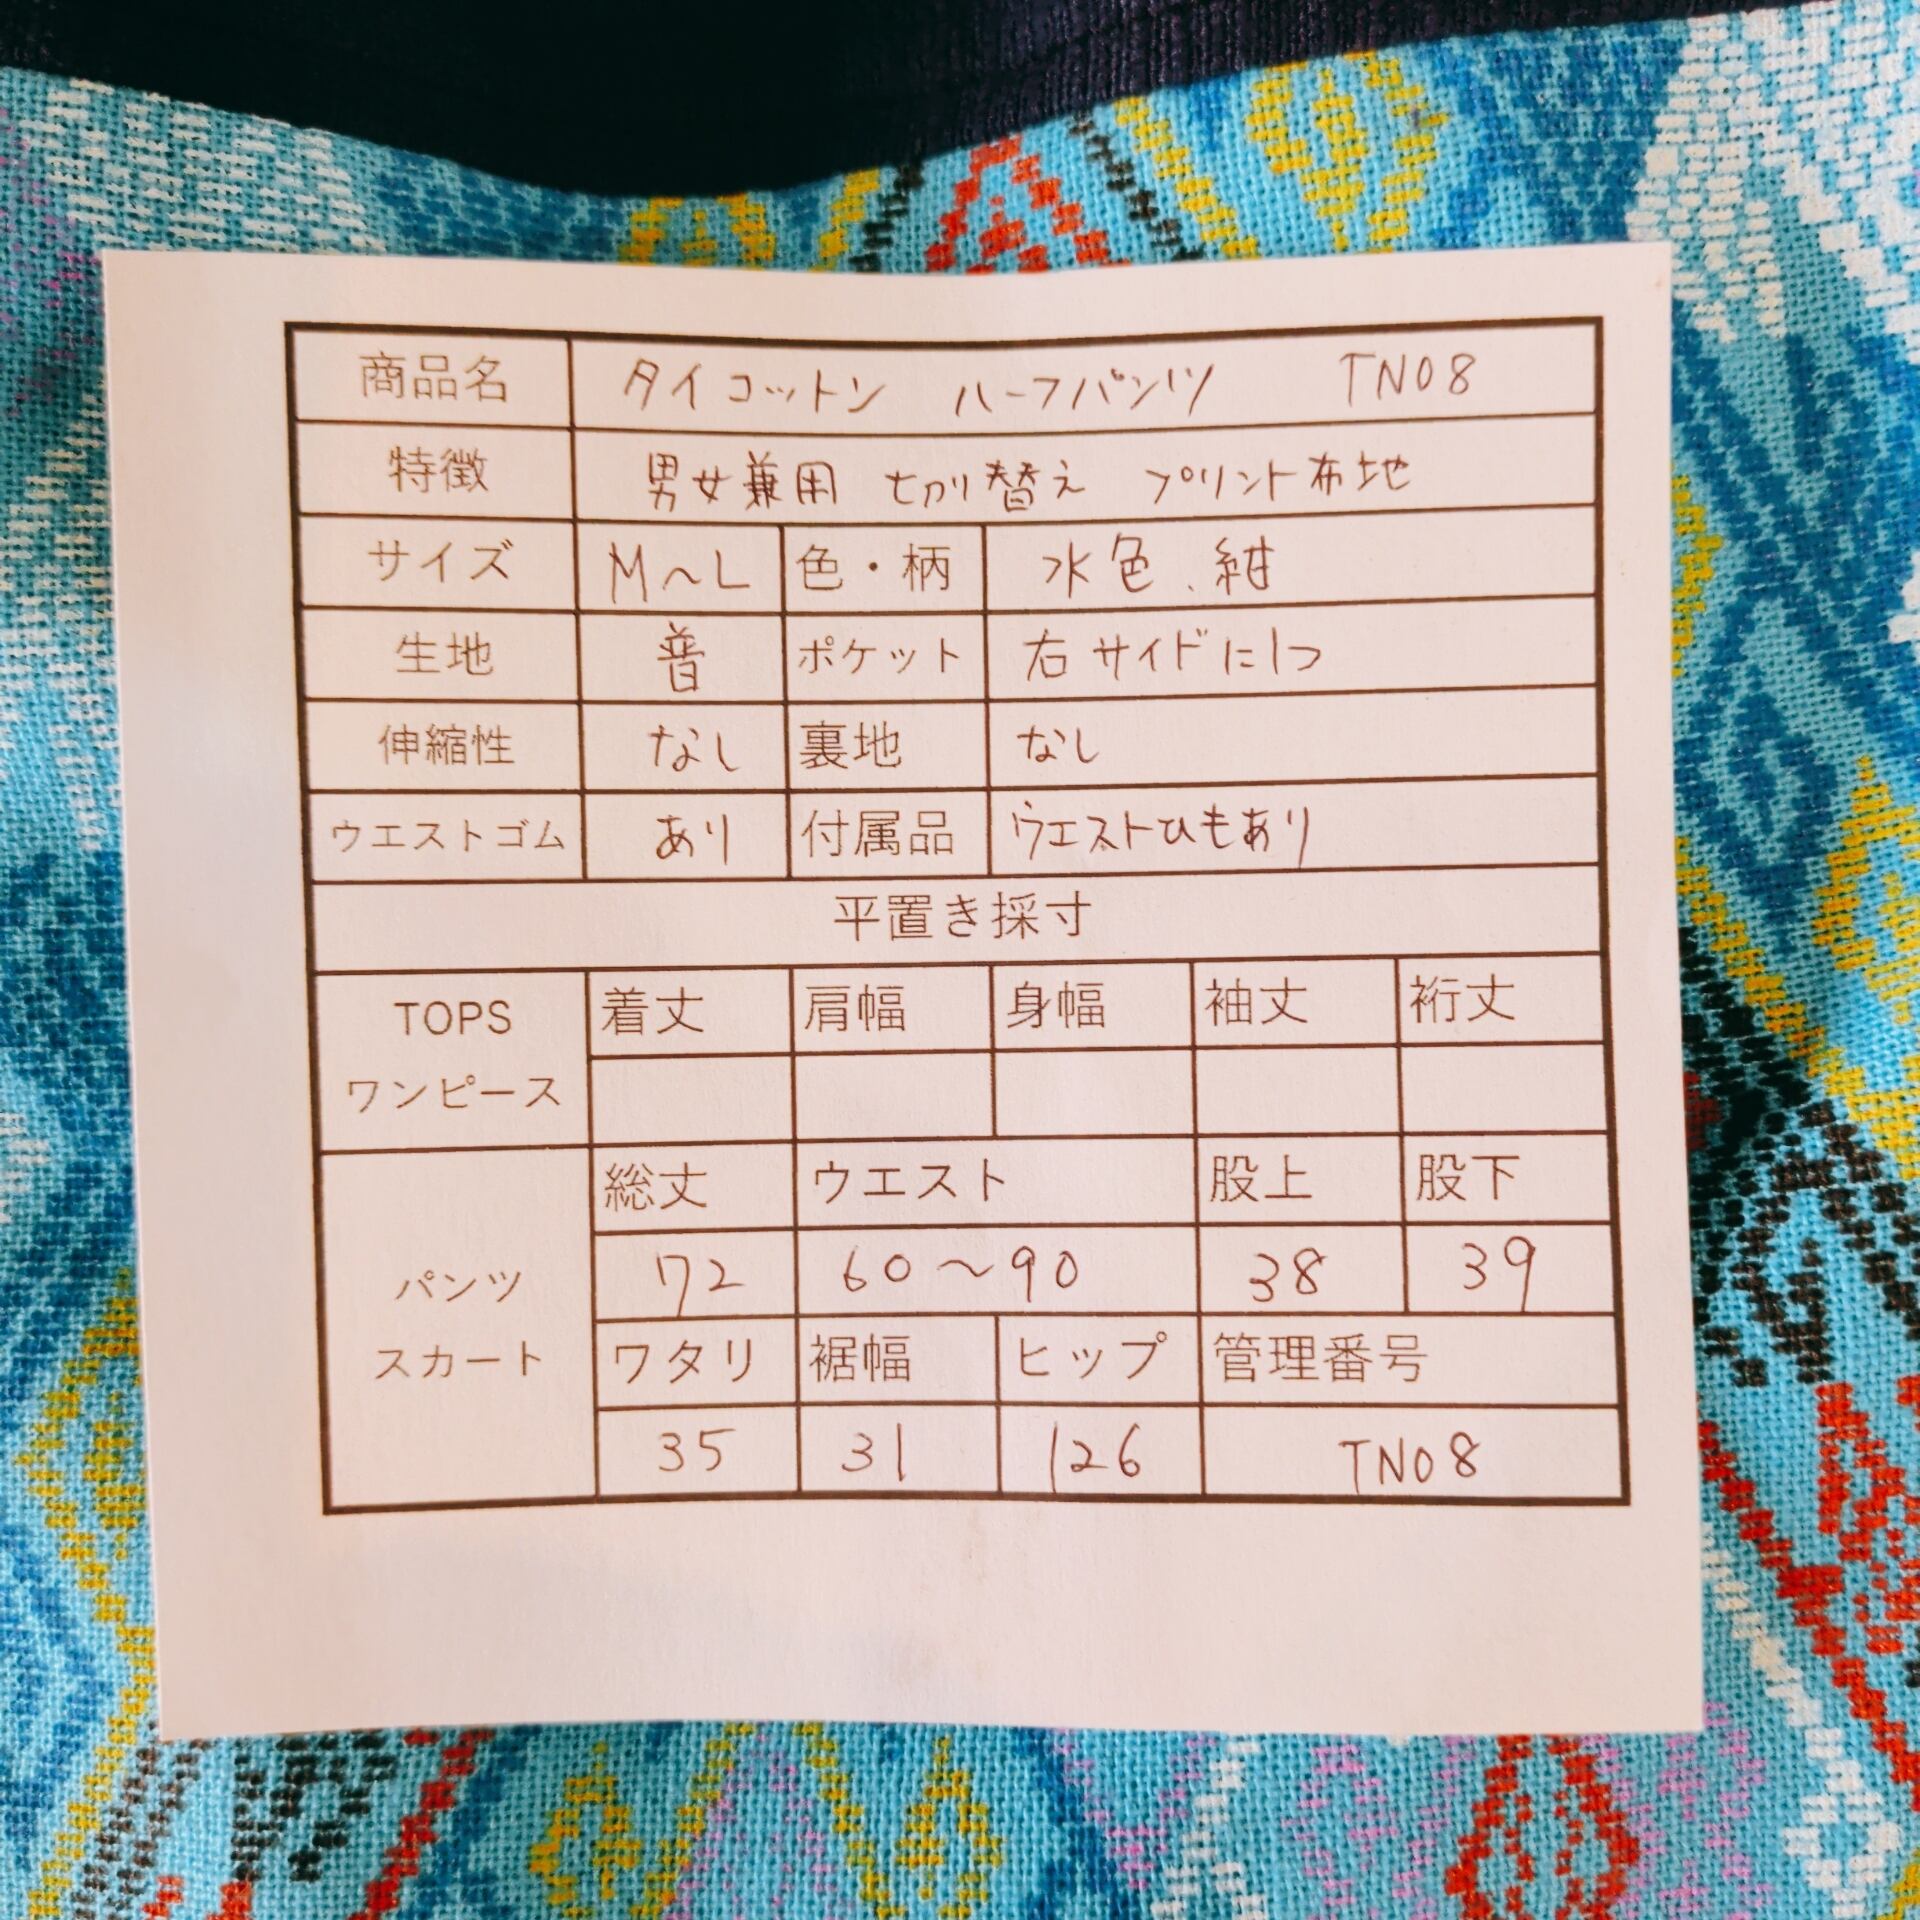 商品名 タイコットン ハーフパンツ TN08
特徴 男女兼用 切り替え プリント布地
サイズ M〜L 色・柄 水色、紺
生地 普 ポケット 右サイドに1つ
伸縮性 なし 裏地 なし
ウエストゴム あり 付属品 ウエストひもあり
平置き採寸
TOPS 着丈 肩幅 身幅 袖丈 裄丈
ワンピース
総丈 ウエスト 股上 股下
パンツ 72 60〜90 38 39
スカート ワタリ 裾幅 ヒップ 管理番号
35 31 126 TN08